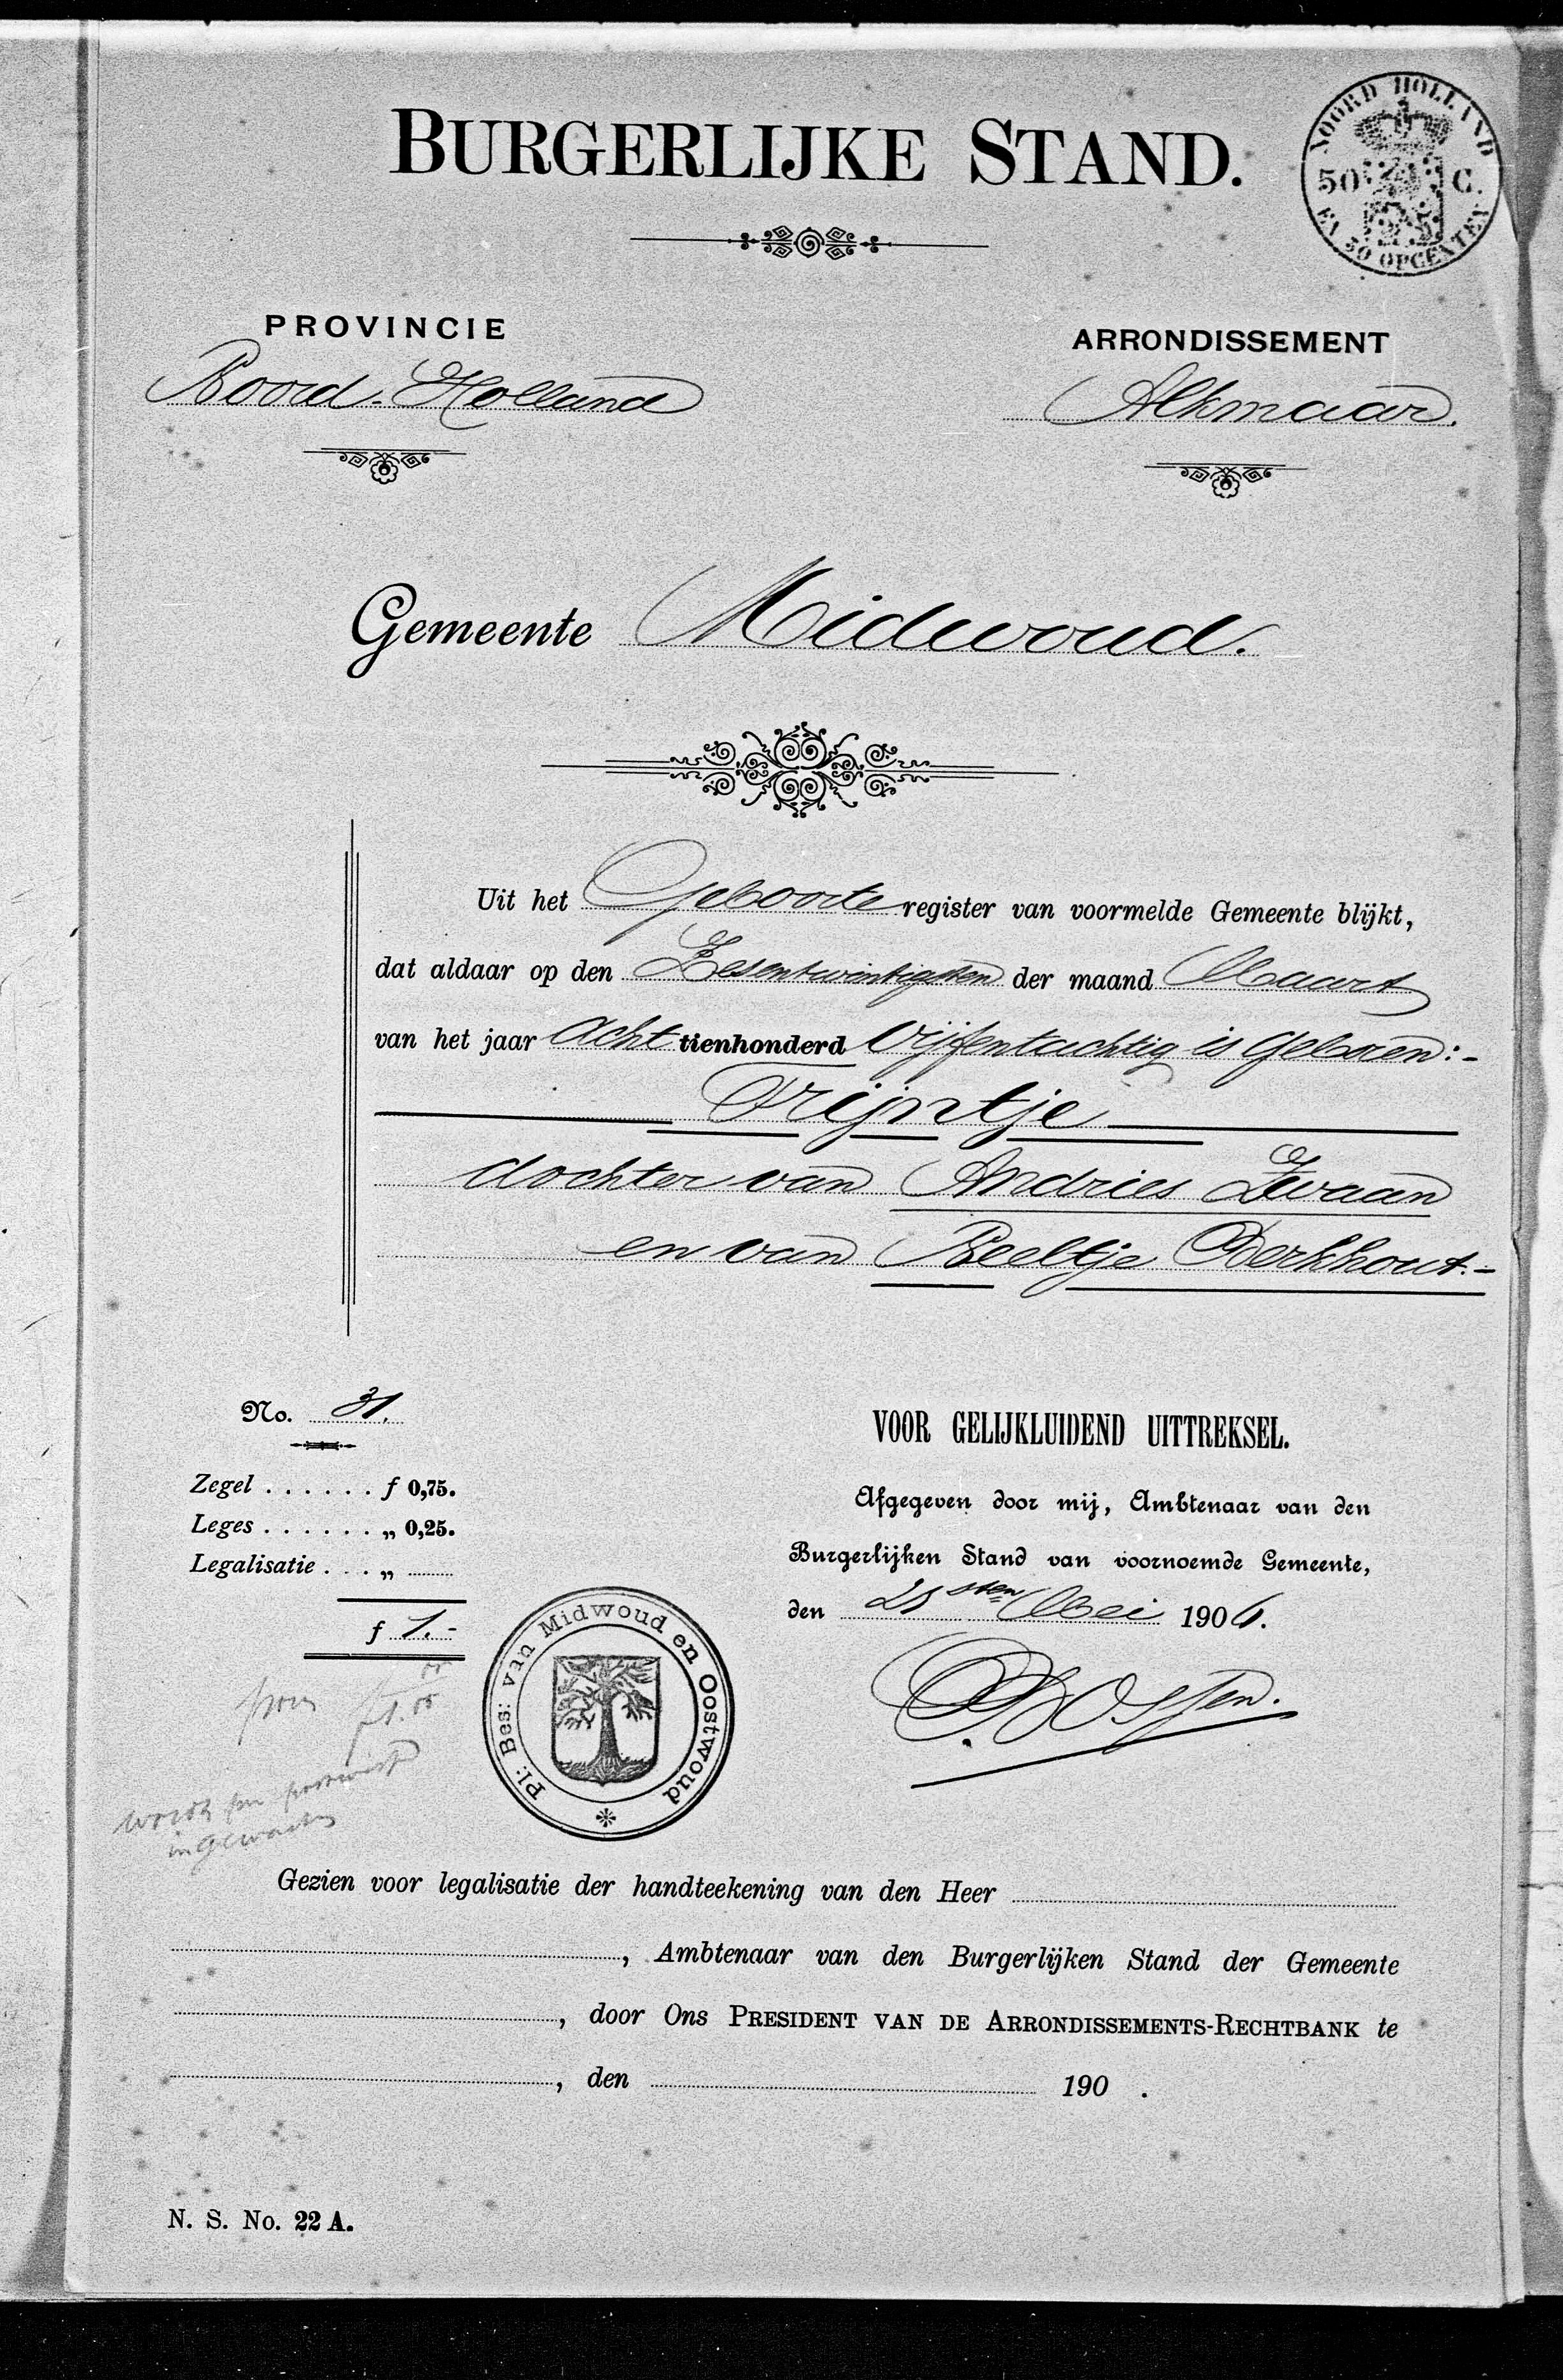 BURGERLIJKE STAND.
NOORD HOLLAND
50 C.
EN 50 OPCENTEN
PROVINCIE
Noord-Holland
ARRONDISSEMENT
Alkmaar.
Gemeente Midwoud.
Uit het Geboorte register van voormelde Gemeente blijkt,
dat aldaar op den Zesentwintigsten der maand Maart
van het jaar Acht tienhonderd Vijfentachtig is Geboren:-
Trijntje
dochter van Andries Zwaan
en van Neeltje Berkhout.-
No. 31.
Zegel . . . . . . f 0,75.
Leges . . . . . . „ 0,25.
Legalisatie . . . „
f 1.-
VOOR GELIJKLUIDEND UITTREKSEL.
Afgegeven door mij, Ambtenaar van den
Burgerlijken Stand van voornoemde Gemeente,
den 21sten Mei 1906.
Pl: Bes: van Midwoud en Oostwoud
*
Gezien voor legalisatie der handteekening van den Heer
, Ambtenaar van den Burgerlijken Stand der Gemeente
, door Ons PRESIDENT VAN DE ARRONDISSEMENTS-RECHTBANK te
, den 190 .
N. S. No. 22 A.